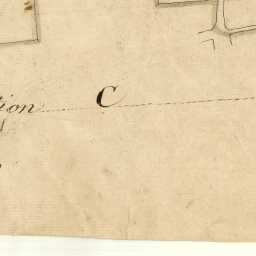 tion C